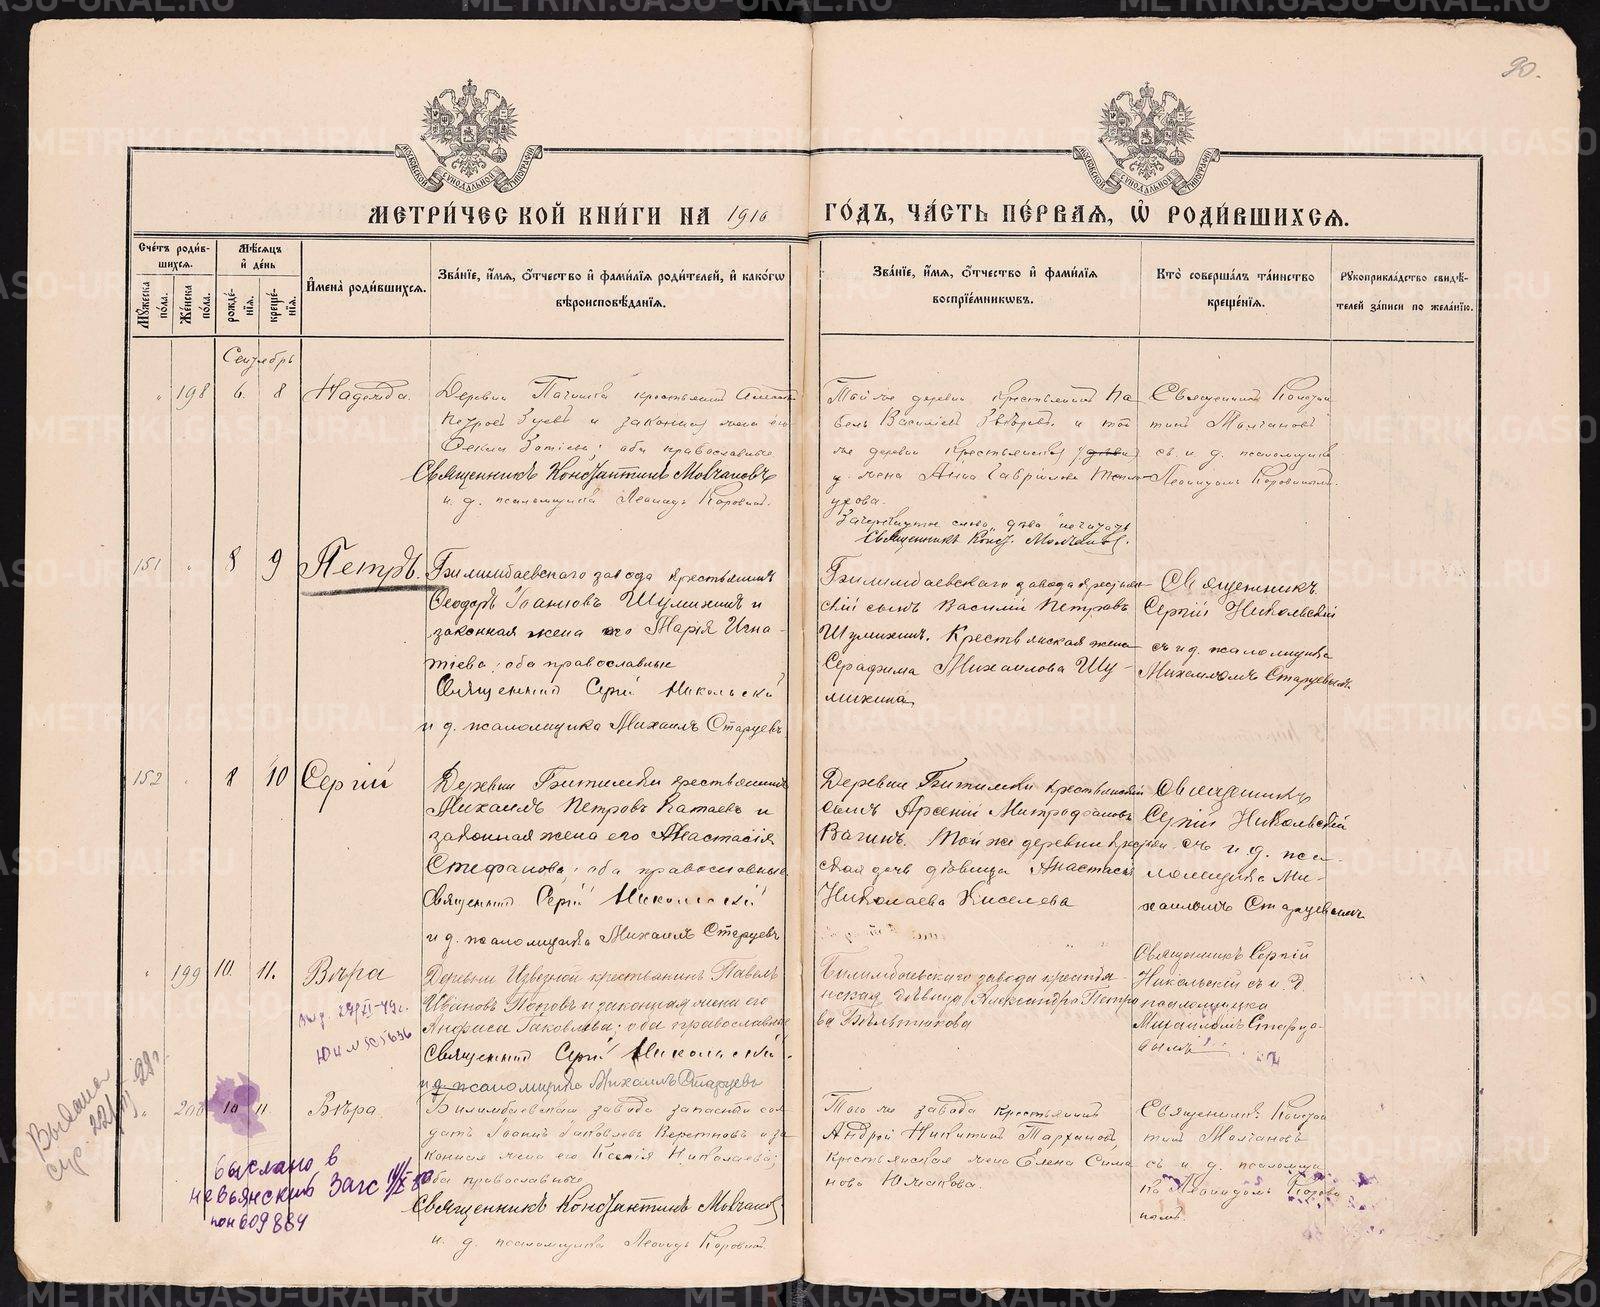 90.
МОСКОВСКОЙ СѴНОДАЛЬНОЙ ТИПОГРАФІИ
МОСКОВСКОЙ СѴНОДАЛЬНОЙ ТИПОГРАФІИ
МЕТРИ́ЧЕСКОЙ КНИ́ГИ НА 1916
ГО́ДЪ, ЧА́СТЬ ПЕ́РВАѦ, Ѡ҆ РОДИ́ВШИХСѦ.
Сче́тъ роди́в-
шихсѧ.
Мꙋ́жеска
по́ла.
Же́нска
по́ла.
Мѣ́сѧцъ
и҆ де́нь
рожде́-
нїѧ.
креще́-
нїѧ.
И҆мена̀ роди́вшихсѧ.
Зва́нїе, и҆́мѧ, ѻ҆́тчество и҆ фами́лїѧ роди́телей, и҆ како́гѡ
вѣроисповѣ́данїѧ.
Зва́нїе, и҆́мѧ, ѻ҆́тчество и҆ фами́лїѧ
воспрїе́мникѡвъ.
Кто̀ соверша́лъ та́инство
креще́нїѧ.
Рꙋкоприкла́дство свидѣ́-
телей за́писи по жела́нїю.
Сентябрь
" 198 6. 8 Надежда.
Деревни крестьянинъ
Петровъ Зуевъ и законная жена его
Фекла оба православные
Священникъ Константинъ Молчановъ
и. д. псаломщика Леонидъ Коровинъ.
Той же деревни крестьянинъ Па-
велъ Василіевъ Звѣревъ и той
же деревни крестьянская дѣва
жена Анна Гавріилова
ухова.
Зачеркнутое слово "дѣва" не читать
Священникъ Конст. Молчановъ.
Священникъ Констан
тинъ Молчановъ
съ и. д. псаломщика
Леонидомъ Коровинымъ.
151 " 8 9 Петръ.
Билимбаевскаго завода крестьянинъ
Ѳеодоръ Іоанновъ Шумихинъ и
законная жена его Марія Игна-
тіева; оба православные
Священникъ Сергій Никольскій
и д. псаломщика Михаилъ Старцевъ
Билимбаевскаго завода крестьян-
скій сынъ Василій Петровъ
Шумихинъ. Крестьянская жена
Серафима Михаилова Шу-
михина
Священникъ
Сергій Никольскій
съ и д. псаломщика
Михаиломъ Старцевымъ.
152 " 8 10 Сергій
Деревни Битимки крестьянинъ
Михаилъ Петровъ Катаевъ и
законная жена его Анастасія
Стефанова; оба православные
Священникъ Сергій Никольскій
и д. псаломщика Михаилъ Старцевъ
Деревни Битимки крестьянскій
сынъ Арсеній Митрофановъ
Вагинъ. Той же деревни крестьян
ская дочь дѣвица Анастасія
Николаева Киселева
Священникъ
Сергій Никольскій
съ и. д. пса-
ломщика Ми-
хаиломъ Старцевымъ
" 199 10. 11. Вѣра
Деревни Извездной крестьянинъ Павелъ
Ивановъ Поповъ и законная жена его
Анфиса Іаковлева; оба православные
Священникъ Сергій Никольскій.
и д. псаломщика Михаилъ Старцевъ
Билимбаевскаго завода крестья-
нская дѣвица Александра Петро
ва Бѣлтюкова
Священникъ Сергій
Никольскій съ и. д.
псаломщика
Михаиломъ Старце-
вымъ
" 200 10 11 Вѣра.
Билимбаевскаго завода запасной сол-
датъ Іоаннъ Іаковлевъ и за-
конная жена его Ксенія Николаева;
оба православные
Священникъ Константинъ Молчановъ
и. д. псаломщика Леонидъ Коровинъ.
Того же завода крестьянинъ
Андрей Никитинъ Тархановъ,
крестьянская жена Елена Сима
нова
Священникъ Констан
тинъ Молчановъ
съ и. д. псаломщи
ка Леонидомъ Корови
нымъ.
выслано в
невьянский Загс